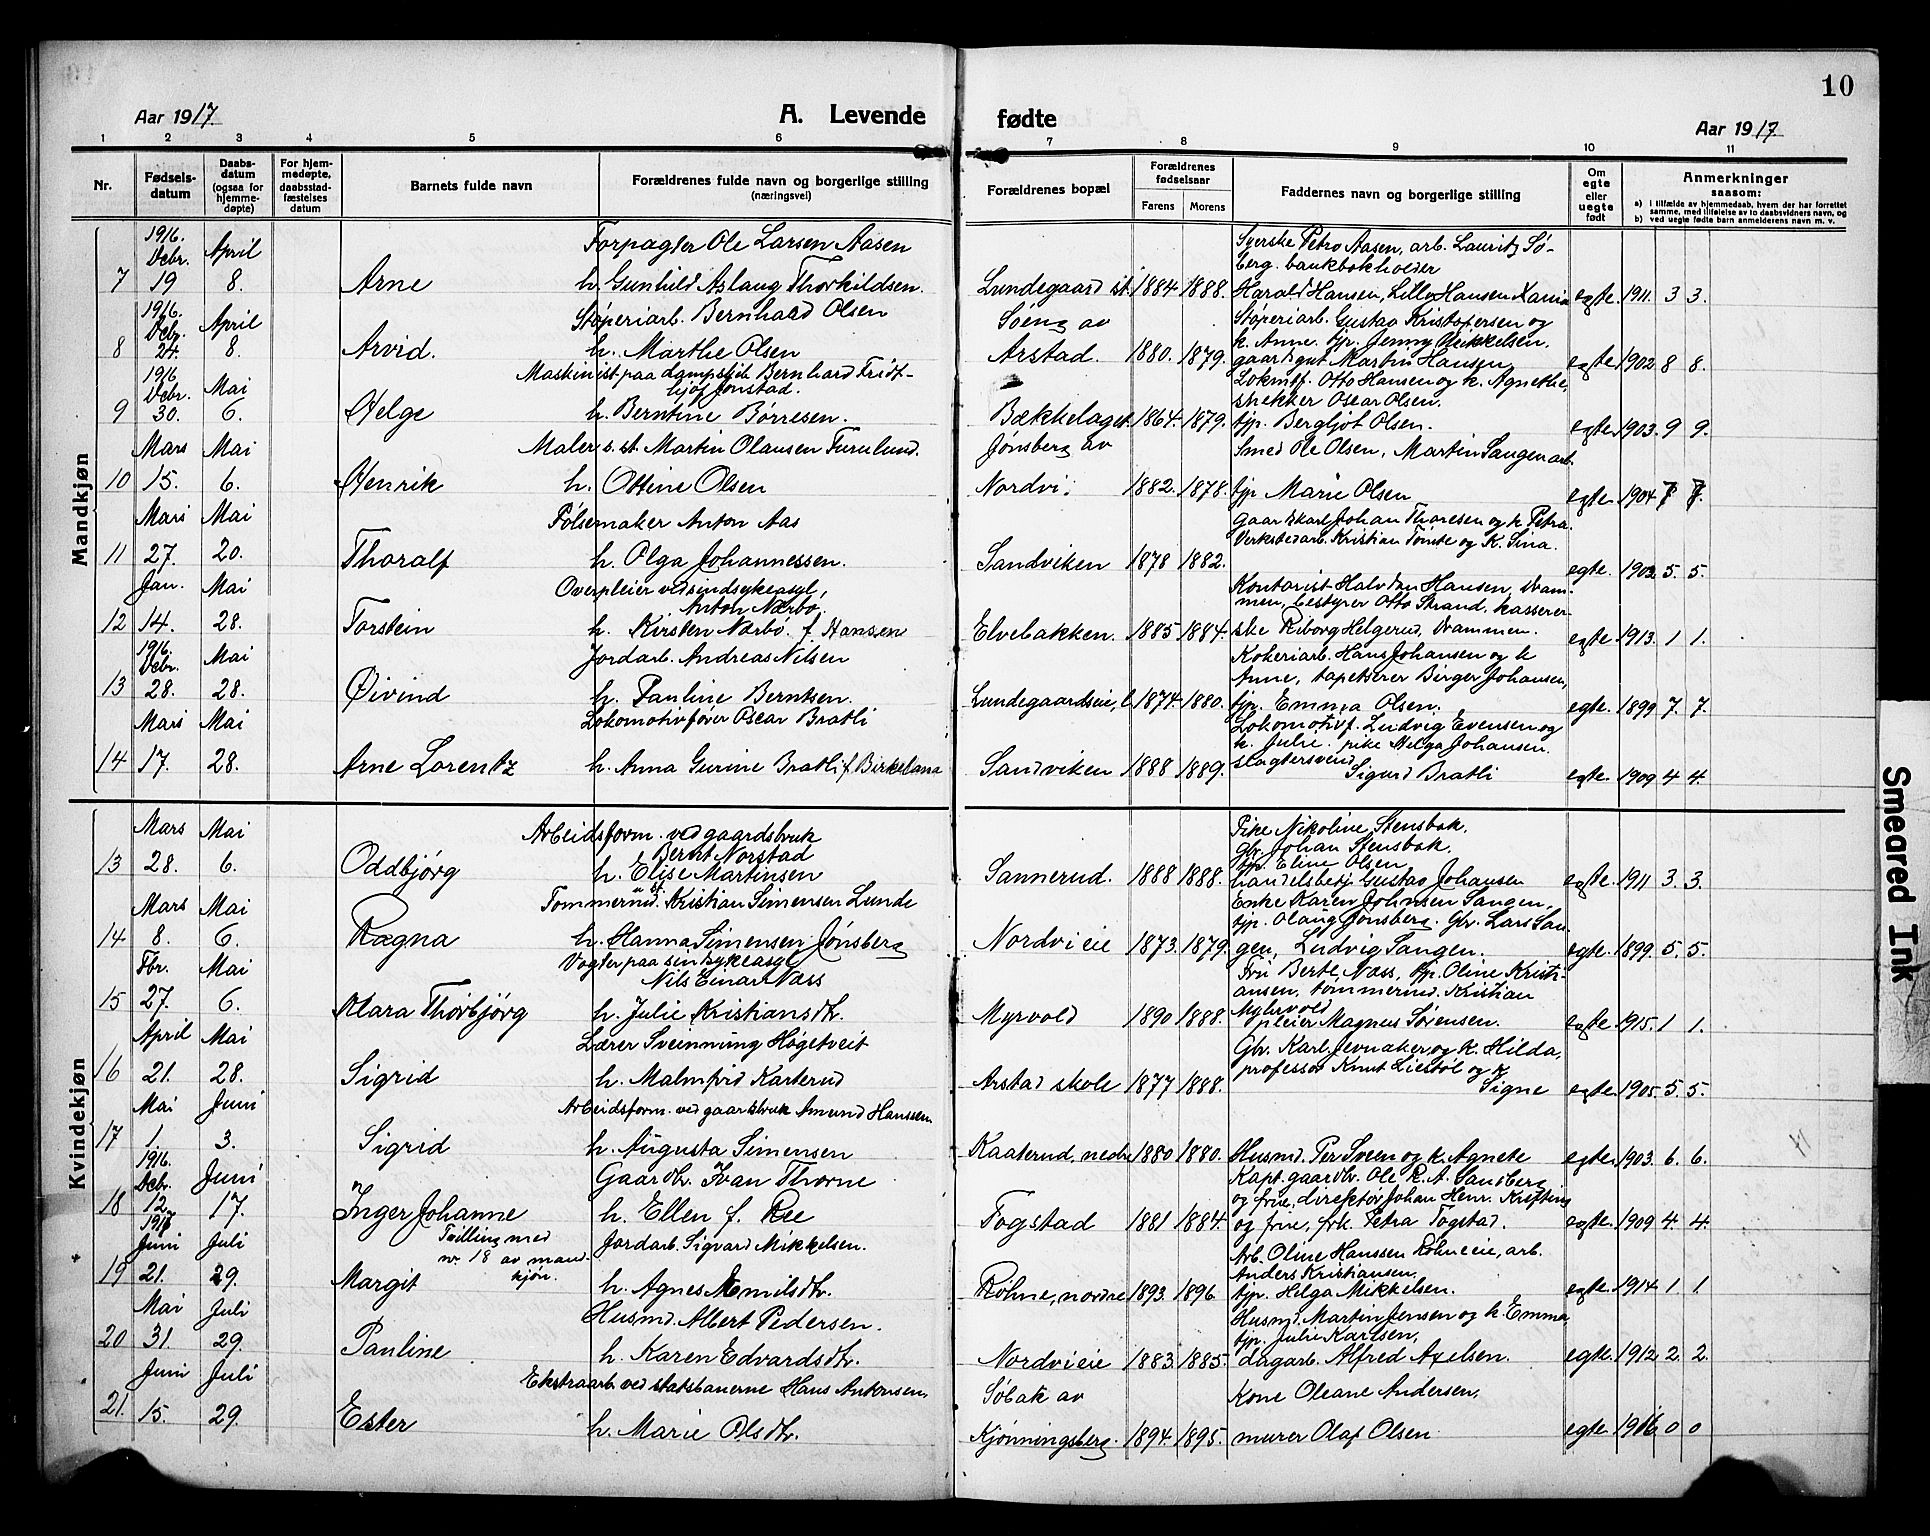 10
Aar 1917.
A. Levende
fødte
Aar 1917.
1 2 3 4 5 6 7 8 9 10 11
Nr.
Fødsels-
datum
Daabs-
datum
(ogsaa for
hjemme-
døpte)
For hjem-
medøpte,
daabsstad-
fæstelses
datum
Barnets fulde navn
Forældrenes fulde navn og borgerlige stilling
(næringsvei)
Forældrenes bopæl
Forældrenes
fødselsaar
Farens Morens
Faddernes navn og borgerlige stilling
Om
egte
eller
uegte
født
Anmerkninger
saasom:
a) i tilfælde av hjemmedaab, hvem der har forrettet
samme, med tilføielse av to daabsvidners navn, og
b) ved uegte fødte barn anmelderens navn m. v.
Mandkjøn
1916. Debr. April Forpagter Ole Larsen Aasen Syerske Petra Aasen, arb. Lauritz Sø-
berg. bankbokholder
7 19 8. Arne h. Gunhild Aslaug Thorkildsen. Lundegaard st. 1884 1888. Harald Hansen, Lilly Hansen egte. 1911. 3 3.
1916. Debr. April Støperiarb. Bernhard Olsen Søeng av Støperiarb. Gustav Kristofersen og
8 24. 8. Arvid. h. Marthe Olsen Arstad. 1880. 1879. k. Anne. tjp. Jenny Mikkelsen,
gaardgut Martin Hansen egte. 1902 8 8.
1916 Debr. Mai Maskinist paa dampskib Bernhard Fridt-
hjof Jonstad. Lokmtf. Otto Hansen og k. Agnethe,
snekker Oscar Olsen.
9 30. 6. Helge h. Berntine Borresen. Bækkelaget. 1864. 1879. tjp. Bergljot Olsen. egte. 1903. 9 9.
Mars Mai Maler s. st. Martin Olausen Furulund. Jønsberg av Smed Ole Olsen, Martin Sangen arb.
10 15. 6. Henrik h. Ottine Olsen Nordvi. 1882. 1878. tjp Marie Olsen egte. 1904 7 7.
Mars Mai Pølsemaker Anton Aas Gaardskarl Johan Thoresen og k. Petra.
Verksbedarb. Kristian Tomte og K. Sina.
11 27. 20. Thoralf h. Olga Johannessen. Sandviken 1878 1882. egte. 1903. 5. 5.
Jan. Mai Overpleier ved sindsykeasyl,
Anton Nærbo. Kontorist Halvdan Hansen, Dram-
men, bestyrer Otto Strand, kasserer-
12 14. 28. Torstein h. Kirsten Nærbø. f. Hansen Elvebakken. 1885 1884. ske Riborg Helgerud, Drammen. egte. 1913. 1 1.
1916. Debr. Mai Jordarb. Andreas Nilsen Kokeriarb. Hans Johansen og k
Anne, tapetserer Birger Johansen,
13 28. 28. Øivind h. Pauline Berntsen. Lundegaardseie, l. 1874. 1880. tjp. Emma Olsen. egte. 1899 7. 7.
Mars Mai Lokomotivfører Oscar Bratli Lokomotivf. Ludvig Evensen og
k. Julie. pike Helga Johansen.
14 17. 28. Arne Lorentz h. Anna Gurine Bratli f. Birkeland Sandviken 1888 1889. slagtersvend
Sigurd Bratli egte. 1909 4 4.
Kvindekjøn
Mars Mai Arbeidsform. ved gaardsbruk
Bernt Norstad Pike Nikoline Stensbak.
Gbr. Johan Stensbak.
tjp. Eline Olsen
13 28. 6. Oddbjørg h. Elise Martinsen Sannerud. 1888 1888. handelsbetj. Gustav Johansen egte. 1911 3. 3.
Mars Mai Tømmermd. Kristian Simensen Lunde Enke Karen Johnsen Sangen,
tjp. Olaug Jønsberg. Gbr. Lars San-
14 8. 6. Ragna h. Hanna Simensen Jønsberg Nordvieie 1873. 1879. gen, Ludvig Sangen. egte. 1899. 5. 5.
Fbr. Mai Vogter paa sindsykeasyl
Nils Einar Næss Fru Berte Næss, tjp. Oline Kristi-
ansen, tømmermd. Kristian
Myhrvold
15 27. 6. Klara Thorbjørg h. Julie Kristiansdtr. Myrvold 1890 1888. pleier Magnus Sørensen. egte. 1915. 1 1.
April Mai Lærer Sveinung Høgetveit Gbr. Karl Jevnaker og k. Hilda,
professor Knut Liestøl og k
16 21. 28. Sigrid h. Malmfrid Karterud Arstad skole 1877 1888. Signe egte. 1905. 5. 5.
Mai Juni Arbeidsform. ved gaardsbruk Amund Hanssen.
17 1. 3. Sigrid h. Augusta Simensen Kaaterud, nedre 1880 1880. Husmd. Per Sveen og k. Agnete egte. 1903. 6. 6.
1916. Debr. Juni Gaardbr. Ivan Thorne Kapt. gaardbr. Ole R. A. Sandberg
og frue, direktør Johan Henr. Kiftins
18 12. 17. Inger Johanne h. Ellen f. Ree Fogstad 1881 1884. og frue, frk. Petra Fogstad. egte. 1909 4. 4.
1917 Juni Juli Tvilling med
nr. 18 av mand-
kjøn. Jordarb. Sigvard Mikkelsen. Arb. Oline Hanssen Røhneeie, arb.
Anders Kristiansen,
19 21. 29. Margit h. Agnes Emilsdtr. Røhne, nordre 1893. 1896. tjp. Helga Mikkelsen. egte. 1914. 1 1.
Mai Juli Husmd. Albert Pedersen. Husmd. Martin Jensen og k. Emma
tjp. Julie Karlsen,
20 31. 29. Pauline h. Karen Edvardsdtr. Nordvieie 1883. 1885. dagarb. Alfred Axelsen. egte. 1912 2. 2.
Juni Juli Ekstraarb. ved statsbanerne Hans Antonsen, Søbak av Kone Oleane Andersen,
21. 15. 29. Ester h. Marie Olsdtr. Kjønningsberg. 1894. 1895. murer Olaf Olsen egte. 1916 0 0
Smeared Ink